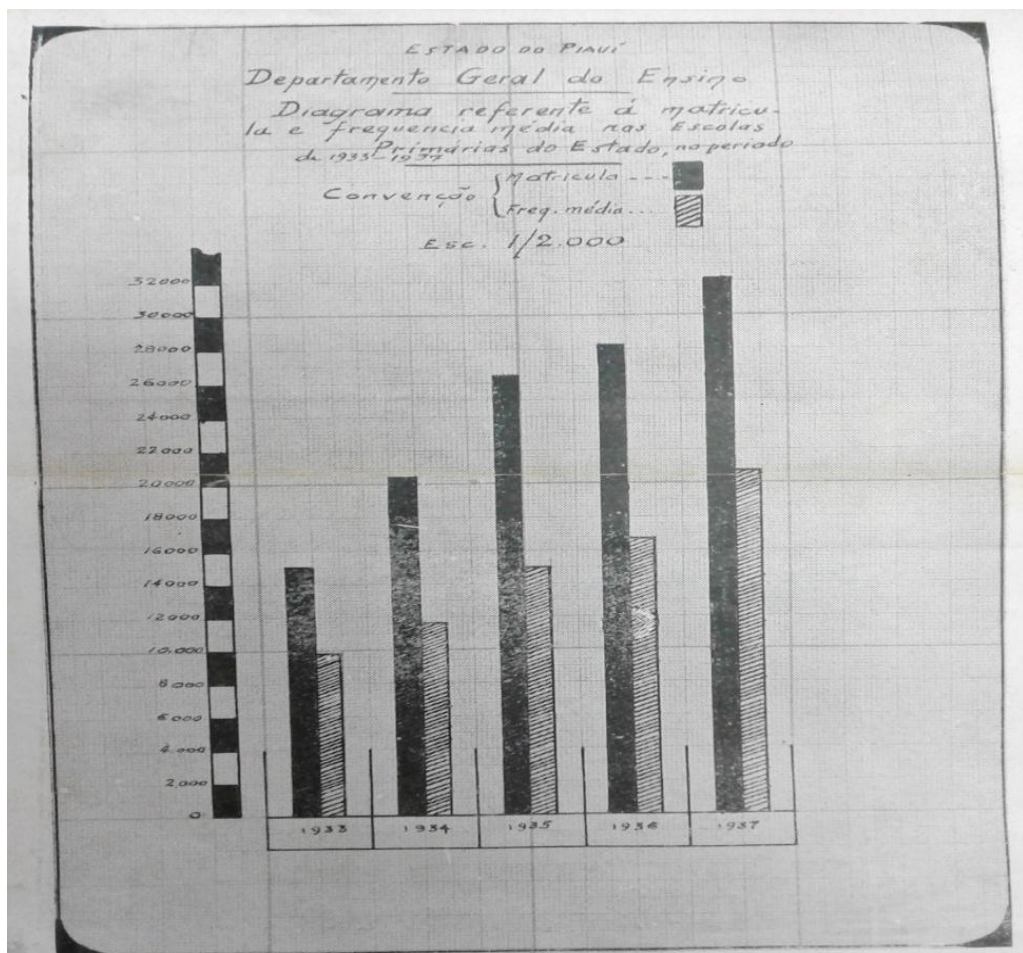 ESTADO DO PIAUÍ
Departamento Geral do Ensino
Diagrama referente á matricu-
la e frequencia média nas Escolas
Primárias do Estado, no periodo
de 1933-1937
Convenção { Matricula ---
Freq. média ...
Esc. 1/2.000
32000
30000
28000
26000
24000
22000
20000
18000
16000
14000
12000
10.000
8000
6000
4.000
2.000
0
1933 1934 1935 1936 1937